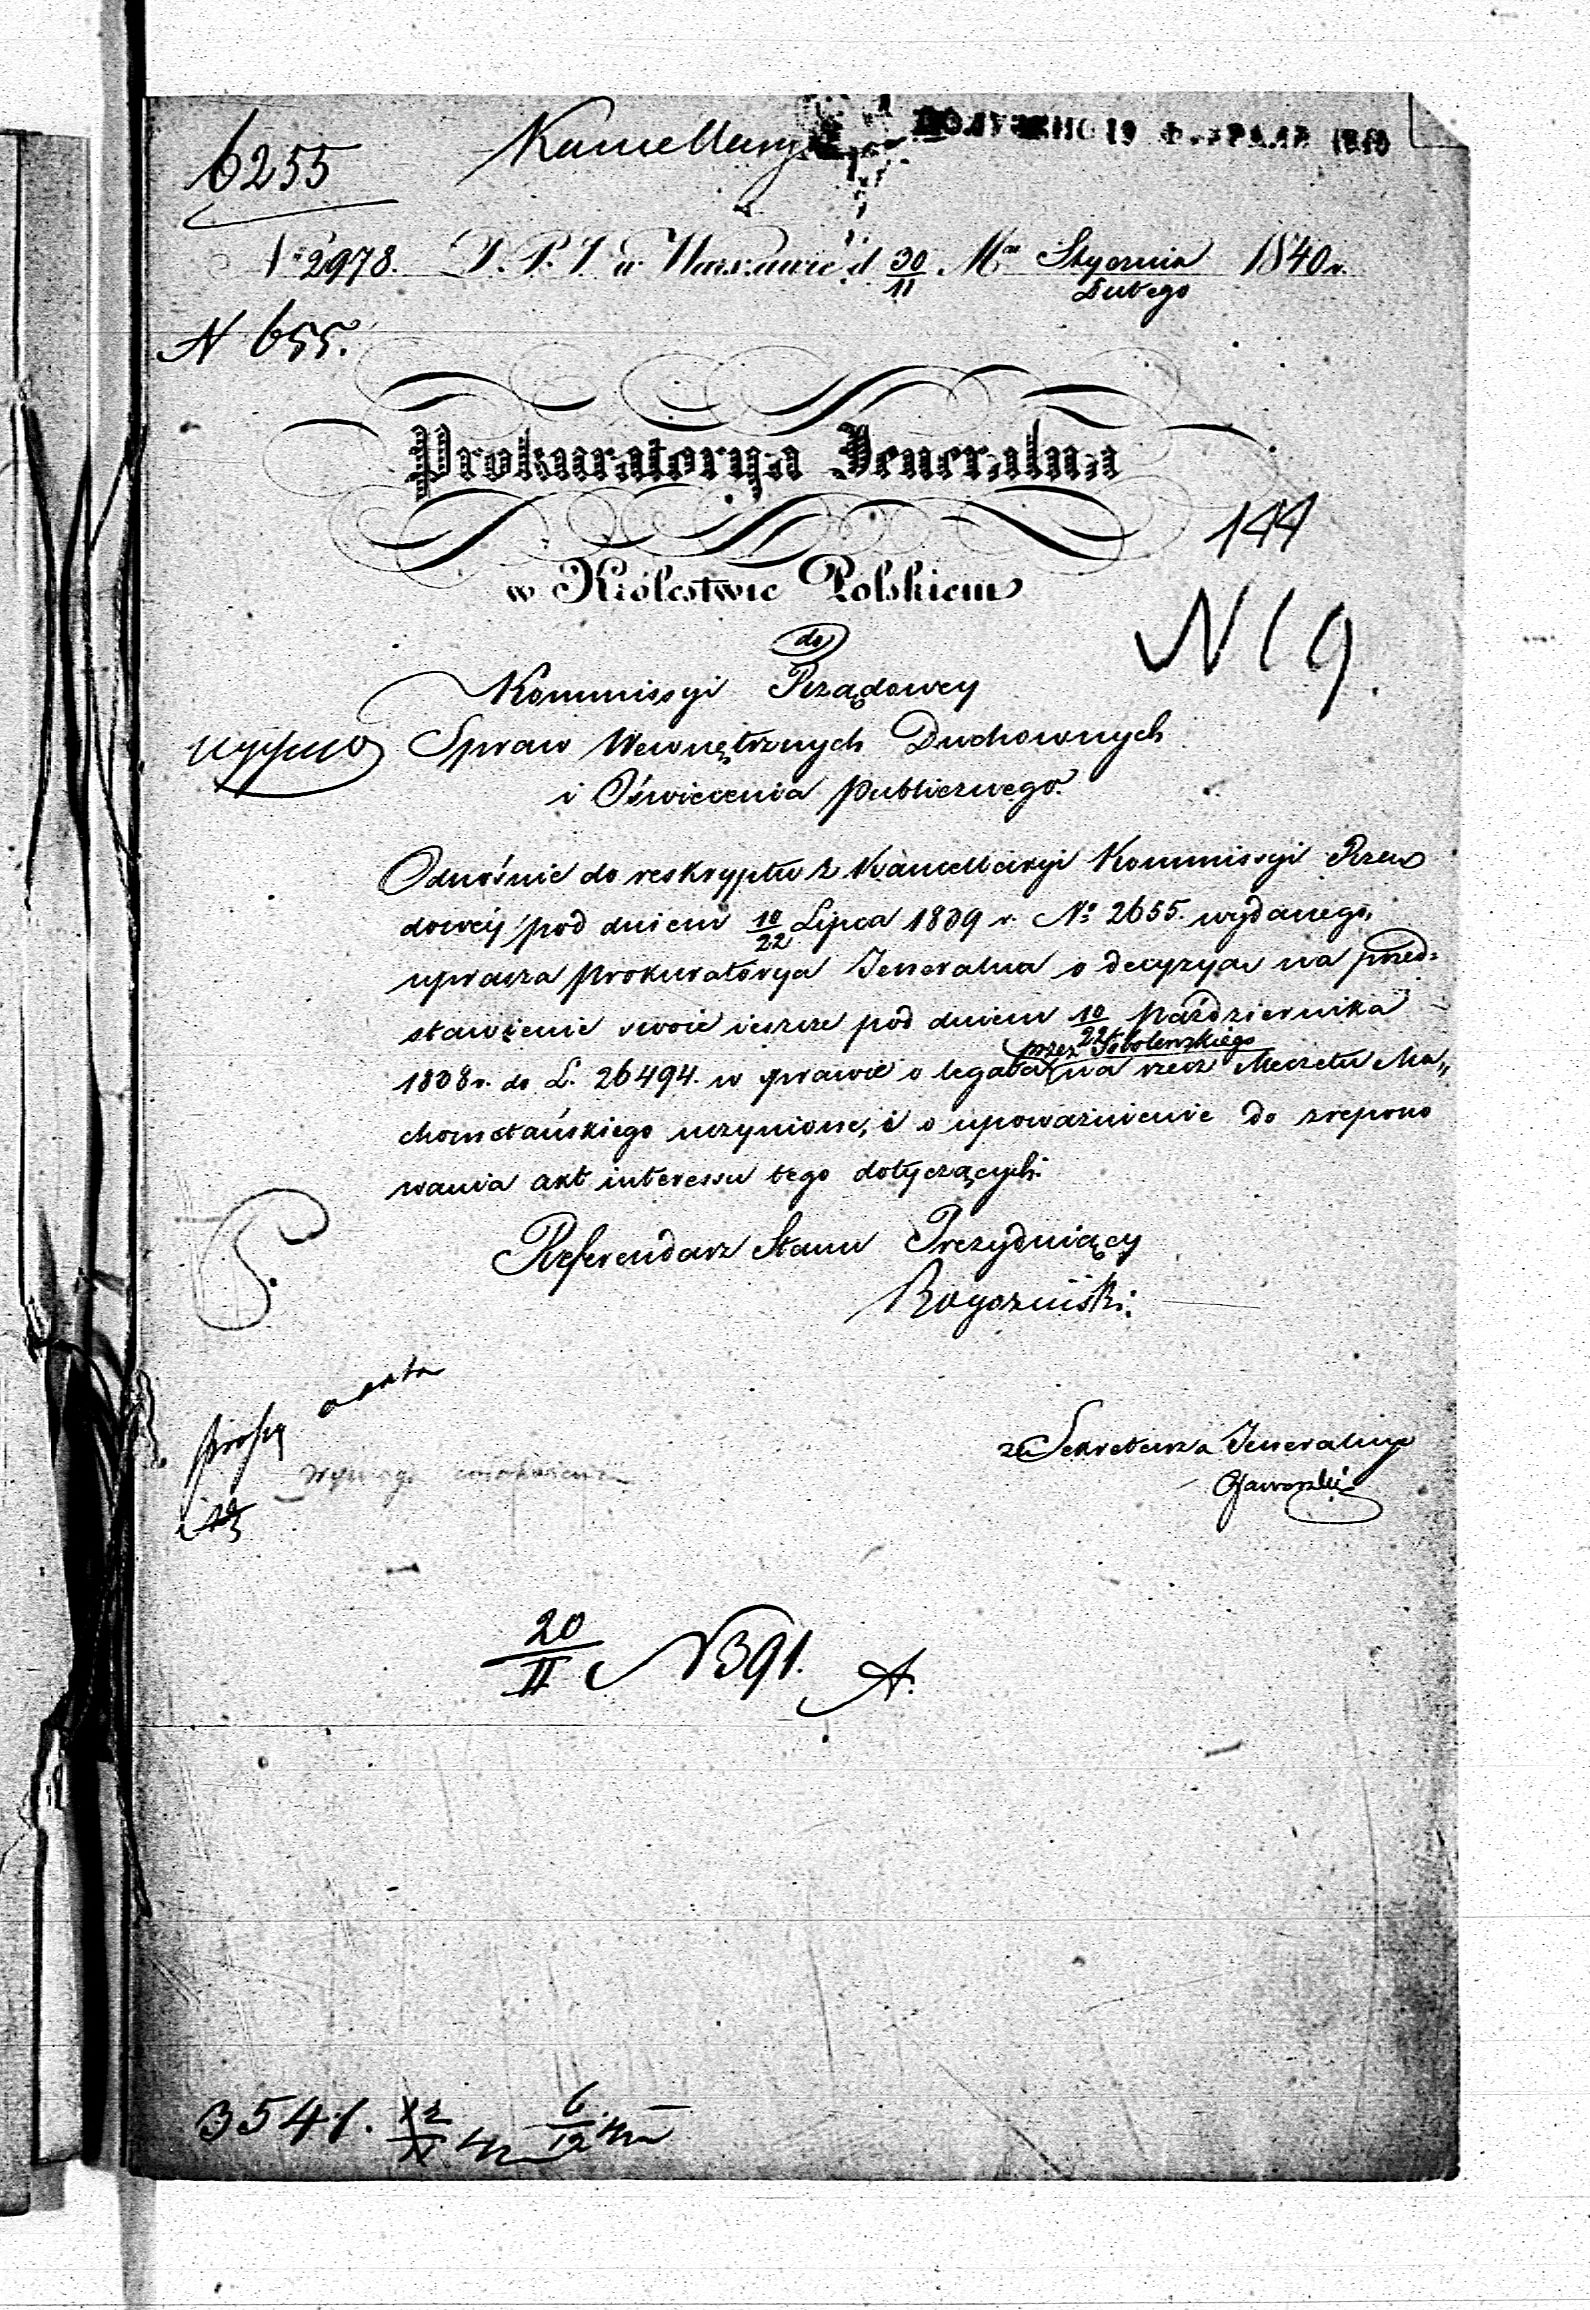 6255
Kancellarya
ПОЛУЧЕНО 19 ФЕВРАЛЯ 1840
No 2978. D. P. J. w Warszawie d 30/11 Mca Stycznia/Lutego 1840 r.
N 655.
Prokuratorya Jeneralna
144
w Królestwie Polskiem
N 19.
do
Kommissyi Rządowey
Spraw Wewnętrznych Duchownych
i Oświecenia Publicznego.
Odnośnie do reskryptu z Kancellaryi Kommissyi Rzą
dowey pod dniem 10/22 Lipca 1839 r. No 2655. wydanego,
uprasza Prokuratorya Jeneralna o decyzyą na przed-
stawienie swoie ieszcze pod dniem 10/22 Października
przez Sobolewskiego
1838 r. do L. 26494. w sprawie o legata na rzecz Meczetu Ma„
chometańskiego uczynione, i o upoważnienie do zrepono
wania akt interessu tego dotyczących.
Referendarz Stanu Prezyduiący
Rogoziński
P.
proszę o akta
za Sekretarza Jeneralnego
Jaworski
20/II N 391. A.
3541. 6/12